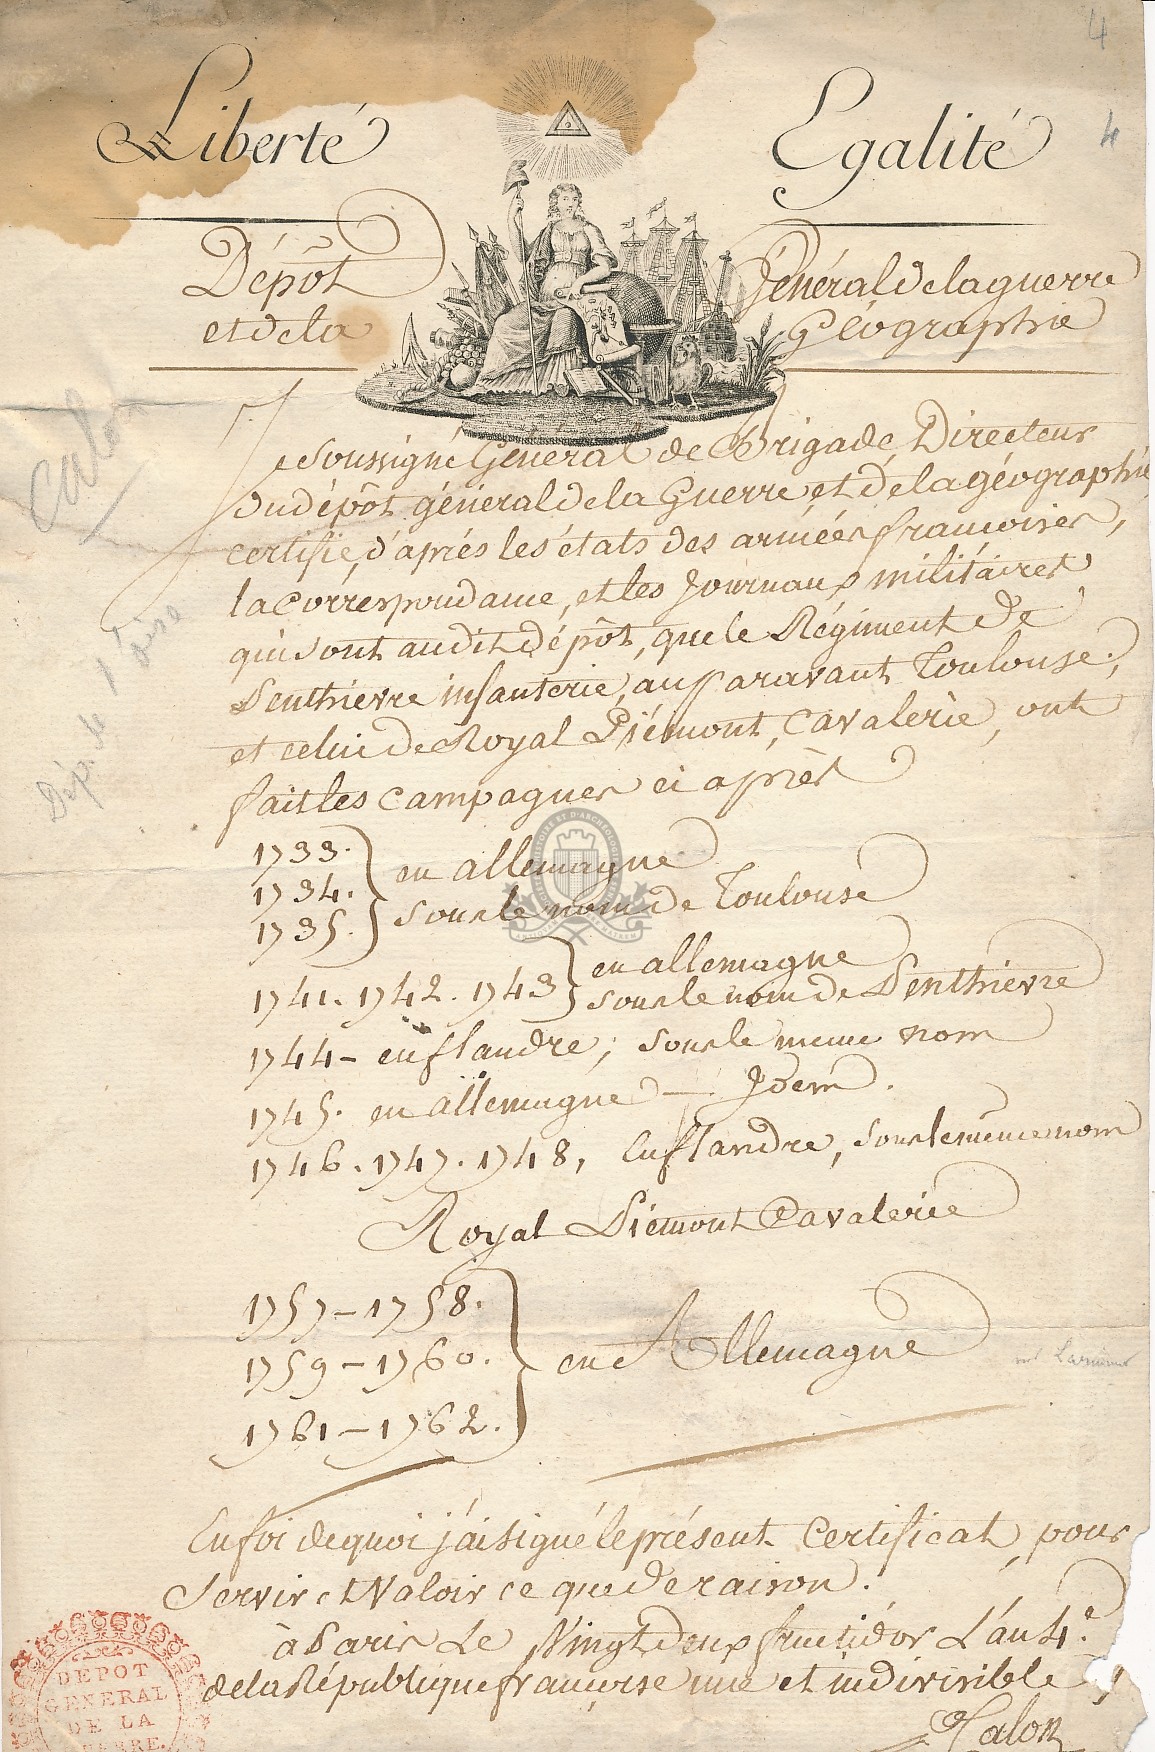 4
4
Liberté Egalité
Dépôt Général de la guerre
et de la Géographie
Je soussigné Général de Brigade, Directeur
du dépôt général de la Guerre et de la géographie
certifie, d'après les états des armées françoises,
la Correspondance, et les Journaux militaires
qui sont audit dépôt, que le Régiment de
Penthievre infanterie, auparavant Toulouse,
et celui de Royal Piémont, Cavalerie, ont
fait les campagnes ci après
1733.
1734. en allemagne
1735. sous le nom de Toulouse
1741. 1742. 1743 en allemagne
sous le nom de Penthievre
1744 - en flandre, sous le meme nom
1745. en allemagne - Idem.
1746. 1747. 1748, En flandre, sous le meme nom
Royal Piémont Cavalerie
1757 - 1758.
1759 - 1760. en Allemagne
1761 - 1762.
En foi de quoi j'ai signé le présent Certificat, pour
Servir et Valoir ce que de raison.
à Paris Le Vingt deux fructidor L'an 4.e
de la République françoise une et indivisible
Calon
DEPOT
GENERAL
DE LA
GUERRE.
Calon
Dép. de l'Oise